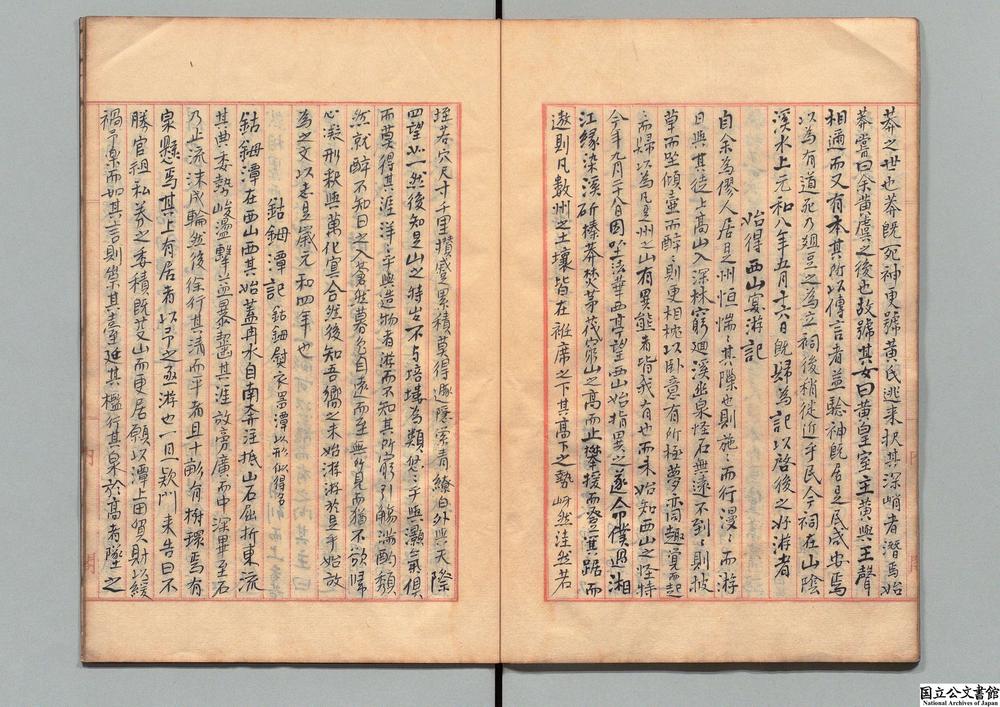 莽之世也莽既死神更號黃氏逃来択其深峭者潛焉始
莽嘗曰余黃虞之後也故號其女曰黃皇室主黃與王聲
相邇而又有本其所以傳言者益驗神既居是民咸安焉
以為有道死乃俎豆之為立祠後稍徙近乎民今祠在山陰
溪水上元和八年五月十六日既歸為記以啓後之好游者
始得西山宴游記
自余為僇人居是州恒惴〻其隙也則施〻而行漫〻而游
日與其徒上高山入深林窮迴溪幽泉怪石無遠不到〻則披
草而坐傾壷而醉〻則更相枕以臥意有所極夢亦同趣覚而起
而歸以為凡是州之山有異態者皆我有也而未始知西山之怪特
今年九月二十八日因坐法華西亭望西山始指異之遂令僕過湘
江縁染溪斫榛莽焚茅茷窮山之高而止攀援而登箕踞而
遨則凡数州之土壤皆在衽席之下其高下之勢岈然洼然若
垤若穴尺寸千里攅蹙累積莫得遯隠萦青繚白外與天際
四望如一然後知是山之特出不与培塿為類悠〻乎與灝氣俱
而莫得其涯洋〻乎與造物者游而不知其所窮引觴満酌頽
然就醉不知日之入蒼然暮色自遠而至至無所見而猶不欲歸
心凝形釈與萬化冥合然後知吾嚮之未始游游於是乎始故
為之文以志是歳元和四年也
鈷鉧潭記 鈷鉧熨衣器潭以形似得名
鈷鉧潭在西山西其始蓋冉水自南奔注抵山石屈折東流
其顚委勢峻盪擊益暴齧其涯故旁廣而中深畢至石
乃止流沫成輪然後徐行其清而平者且十畝有樹環焉有
泉懸焉其上有居者以予之亟游也一旦款門来告曰不
勝官租私券之委積既芟山而更居願以潭上田貿財以緩
禍予楽而如其言則崇其臺延其檻行其泉於高者墜之
国立公文書館
National Archives of Japan